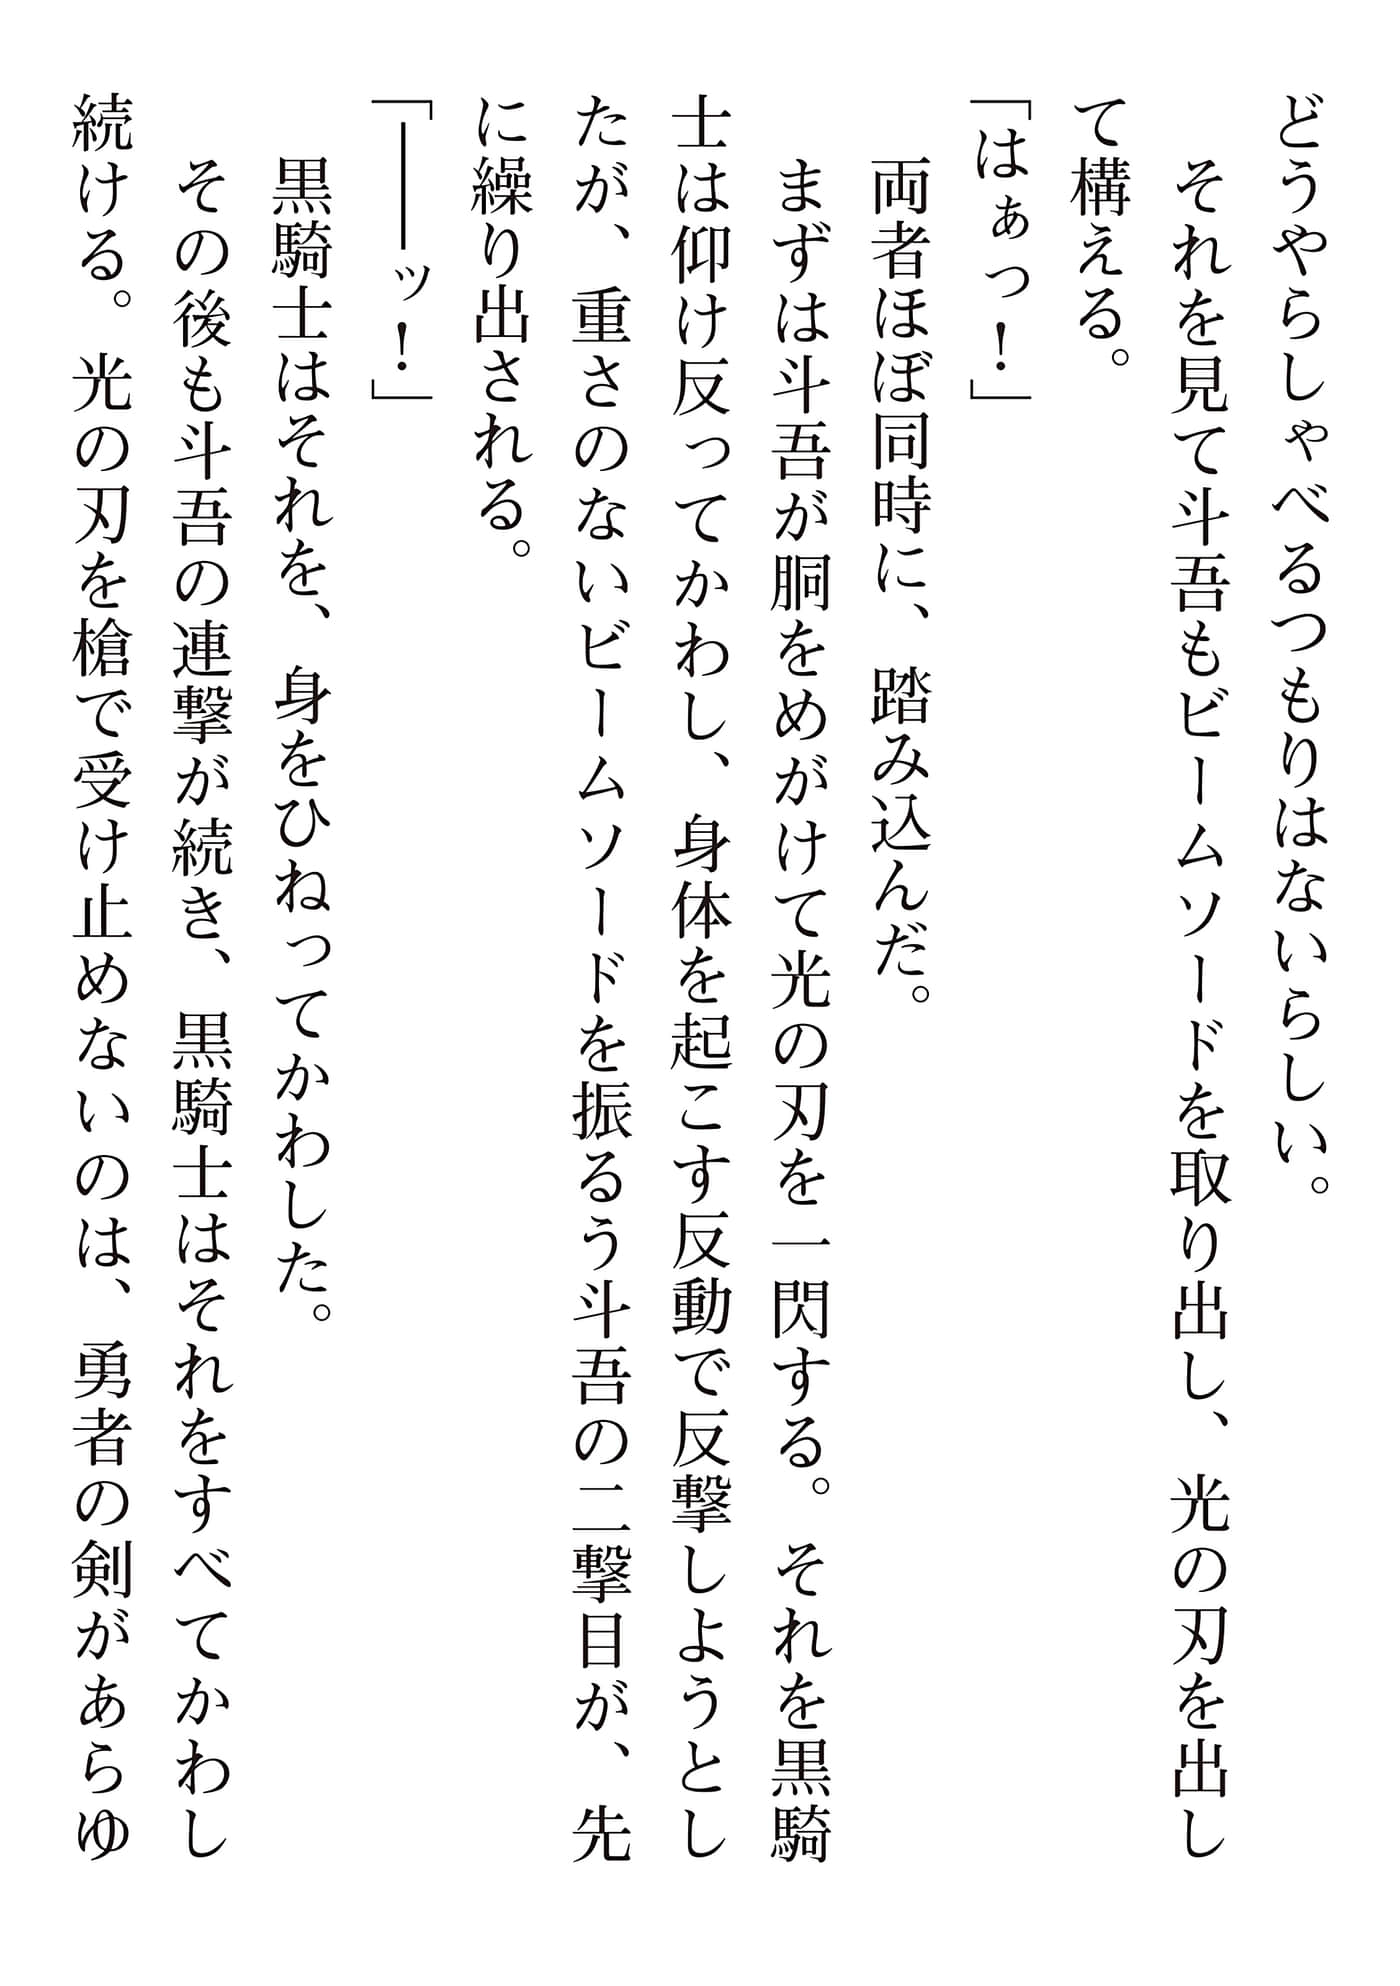 どうやらしゃべるつもりはないらしい。
　それを見て斗吾もビームソードを取り出し、光の刃を出し
て構える。
「はぁっ！」
　両者ほぼ同時に、踏み込んだ。
　まずは斗吾が胴をめがけて光の刃を一閃する。それを黒騎
士は仰け反ってかわし、身体を起こす反動で反撃しようとし
たが、重さのないビームソードを振るう斗吾の二撃目が、先
に繰り出される。
「――ッ！」
　黒騎士はそれを、身をひねってかわした。
　その後も斗吾の連撃が続き、黒騎士はそれをすべてかわし
続ける。光の刃を槍で受け止めないのは、勇者の剣があらゆ